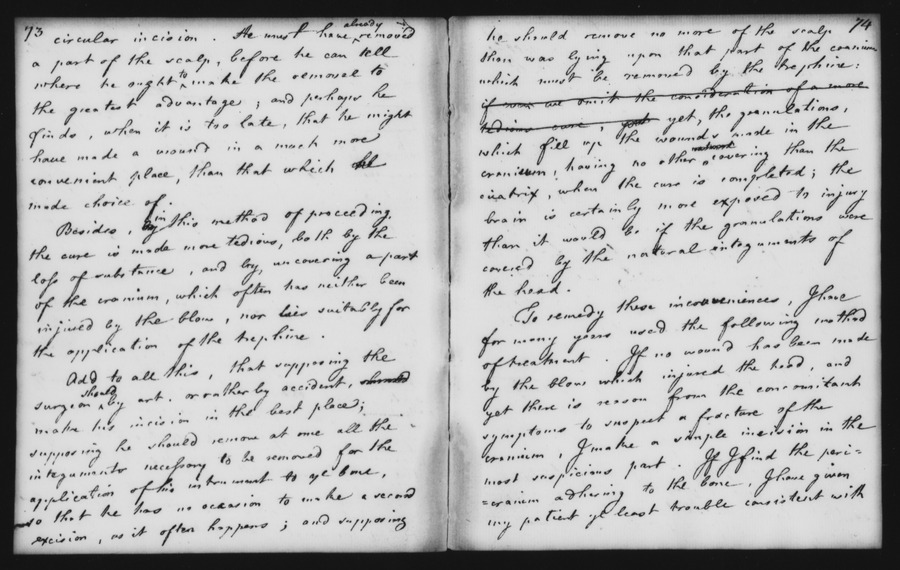 73
already
circular incision. He must have removed
a part of the scalp, before he can tell
where he ought to make the removal to
the greatest advantage; and perhaps he
finds, when it is too late, that he might
have made a wound in a much more
convenient place, than that which
made choice of.
Besides, in this method of proceeding,
the cure is made more tedious, both by the
loss of substance, and by, uncovering a part
of the cranium, which often has neither been
injured by the blow, nor lies suitably for
the application of the trephine.
Add to all this, that supposing the
should
surgeon by art. or rather by accident,
make his incision in the best place;
supposing he should remove at one all the
integuments necessary to be removed for the
application of his instrument to ye bone,
so that he has no occasion to make a second
excision, as it often happens; and supposing
74
he should remove no more of the scalp
than was lying upon that part of the cranium
which must be removed by the trephine:
if we omit the consideration of a more
tedious cure, yet, the granulations,
which fill up the wounds made in the
natural
cranium, having no other covering than the
cicatrix, when the cure is completed; the
brain is certainly more exposed to injury
than it would be if the granulations were
covered by the natural integuments of
the head.
To remedy these inconveniences, I have
for many years used the following method
of treatment. If no wound has been made
by the blow which injured the head, and
yet there is reason from the concomitant
symptoms to suspect a fracture of the
cranium, I make a simple incision in the
most suspicious part. If I find the peri=
=cranium adhering to the bone, I have given
my patient ye least trouble consistent with